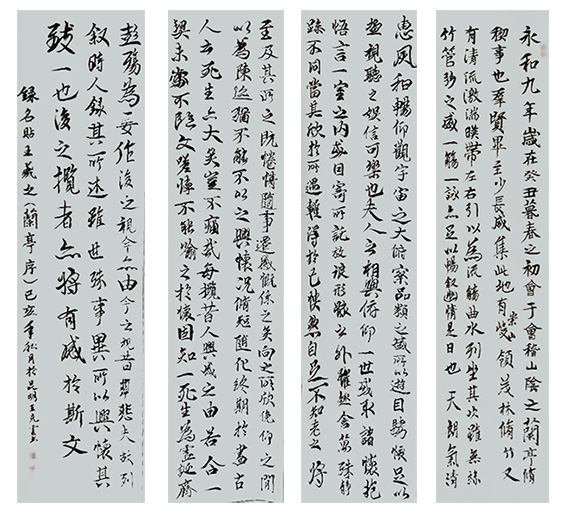 永和九年歲在癸丑暮春之初會于會稽山陰之蘭亭脩
稧事也群賢畢至少長咸集此地有崇峻領茂林脩竹又
有清流激湍暎帶左右引以為流觴曲水列坐其次雖無絲
竹管弦之盛一觴一詠亦足以暢叙幽情是日也天朗氣清
惠風和暢仰觀宇宙之大俯察品類之盛所以遊目騁懷足以
極視聽之娛信可樂也夫人之相與俯仰一世或取諸懷抱
悟言一室之內或因寄所託放浪形骸之外雖趣舍萬殊靜
躁不同當其欣於所遇蹔得於己快然自足不知老之將
至及其所之既惓情隨事遷感慨係之矣向之所欣俛仰之閒
以為陳迹猶不能不以之興懷況脩短隨化終期於盡古
人云死生亦大矣豈不痛哉每攬昔人興感之由若合一
契未嘗不臨文嗟悼不能喻之於懷固知一死生為虛誕齊
彭殤為妄作後之視今亦由今之視昔悲夫故列
叙時人錄其所述雖世殊事異所以興懷其
致一也後之攬者亦將有感於斯文
錄名帖王羲之(蘭亭序)己亥年秋月於昆明王克書